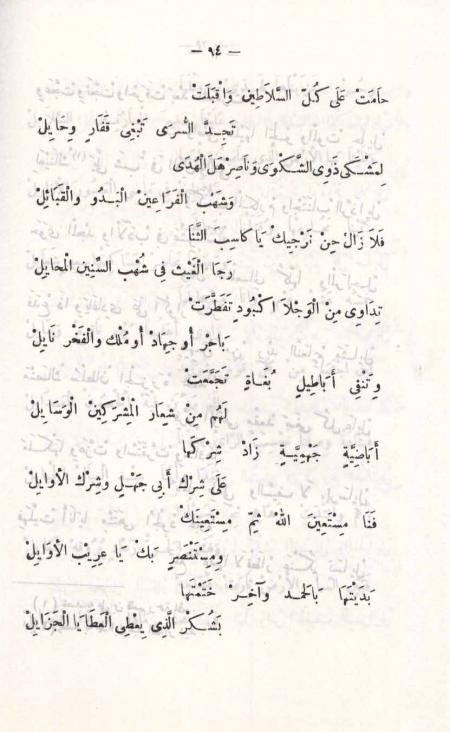 — ٩٤ —
حَامَتْ عَلَى كُلِّ السَّلَاطِينِ وَاقْبَلَتْ
تَجِدَّ السُّرَى تَبْغِي قَفَارٍ وِحَايِلْ
لِمَشْكَى ذَوِي الشَّكْوَى وَنَاصِرْ هَلَ الْهُدَى
وَشَهْبَ الْفَرَاعِينْ الْبَدُو والْقَبَائِلْ
فَلَا زَالْ حِنْ نَرْجِيكْ يَا كَاسِبَ الثَّنَا
رَجَا الْغَيْثَ فِي شُهْبَ السِّنِينَ الْمحَايِلْ
تِدَاوِي مِنْ الْوَجْلَا اكْبُودٍ تفَطَّرَتْ
بَاجْرٍ أوجِهَادٍ أومُلْك والْفَخْر نَايِلْ
وِتَنْفِي أَبَاطِيلٍ بُغَاةٍ تَجَمَّعَتْ
لَهُم مِنْ شِعَارِ الْمِشْرِكِينَ الْوَسَايِلْ
أَبَاضِيَّةٍ جَهْمِيَّةٍ زَادْ شِرْكَهَا
عَلَى شِرْك أَبِي جَهْلٍ وشِرْك الأوَايِلْ
فَنَا مِسْتَعِينَ اللهْ ثِمَّ مِسْتَعِينَكْ
ومِسْتَنْصِرٍ بَكْ يَا عِرِيبْ الأوَايِلْ
بَدَيْتَهَا بَالحَمد وآخِرْ خَتَمْتَهَا
بَشُكرْ الَّذِي يِعْطِي الْعَطَايَا الْجَزَايِلْ